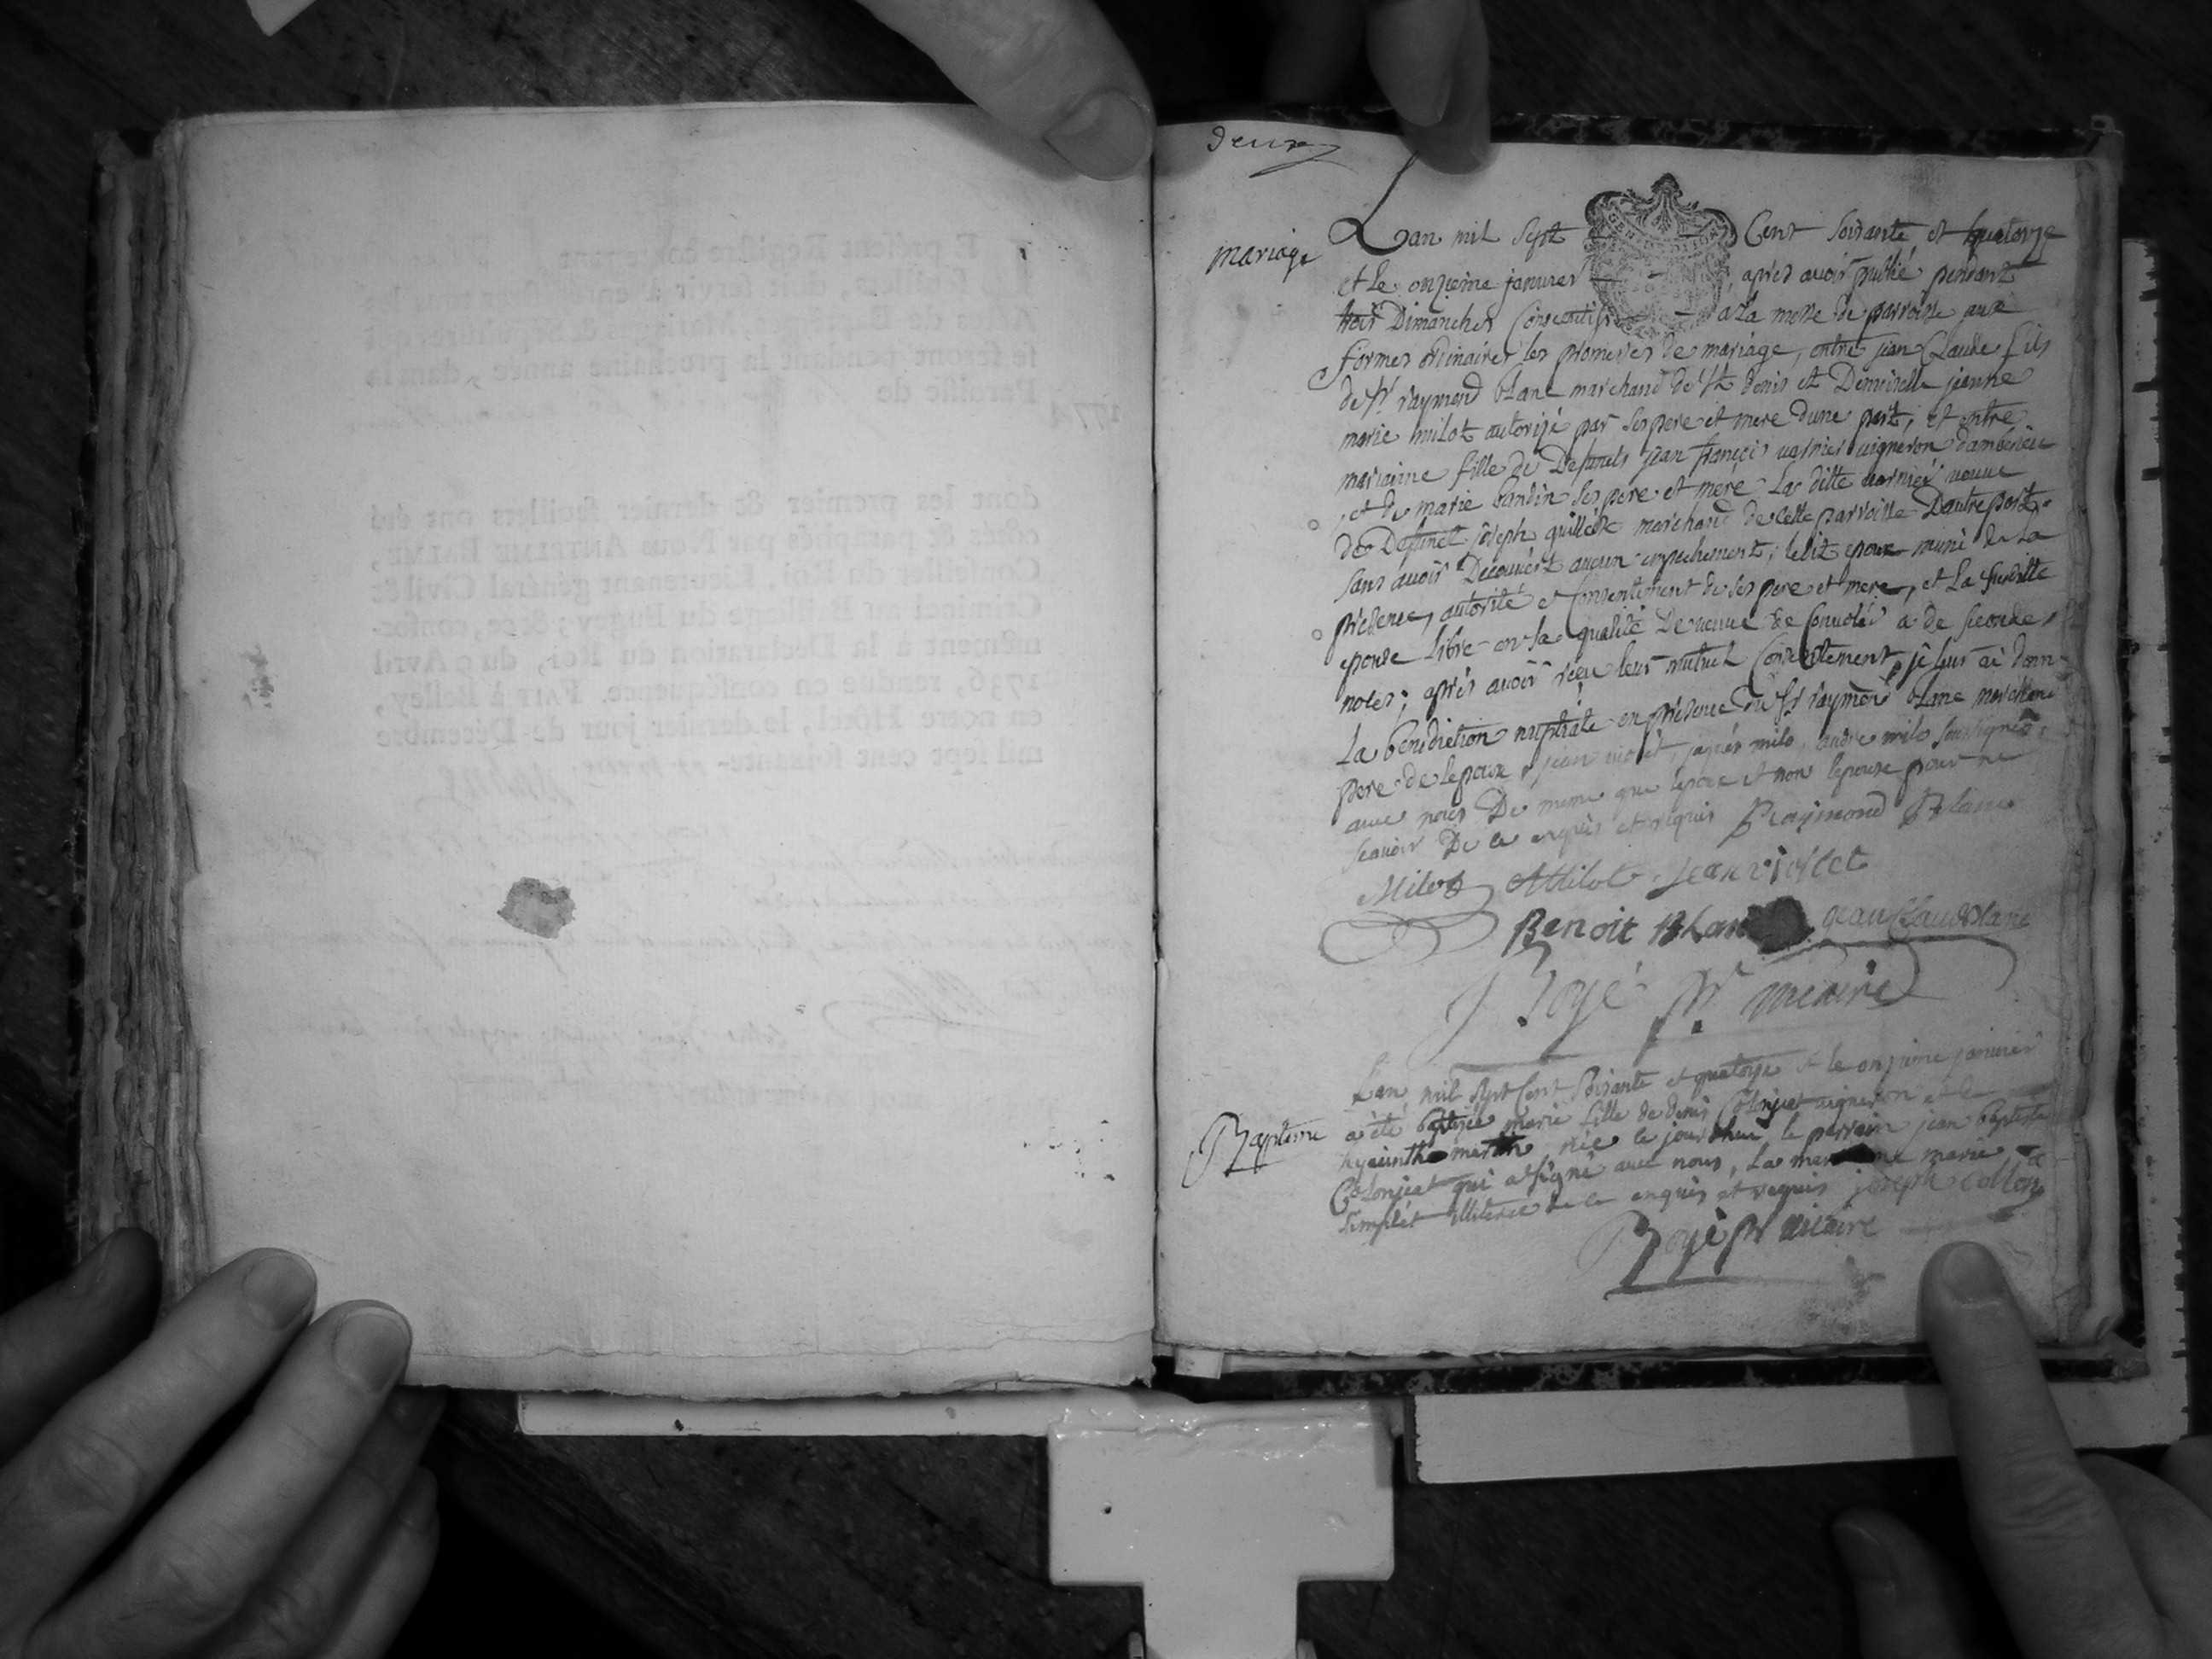 deux
mariage
Lan mil sept Cent soixante et quatorze
et le onzieme janvier après avoir publié pendant
trois Dimanches Consecutifs a La messe de parroisse aux
formes ordinaires les promesses de mariage, entre jean Claude fils
de Sr raymond blanc marchand de St denis et Demoiselle jeanne
marie milot autorisé par ses pere et mere dune part, et entre
mariaine fille de Defunts jean françois varnier vigneron dambérieu
et de marie bandin ses pere et mere La ditte varnier veuve
de Defunct joseph marchand de cette parroisse Dautre part
sans avoir Decouvert aucun empechement, ledit epoux muni de La
présence, autorité et Consentement de ses pere et mere, et La susditte
epouse libre en sa qualité De veuve de Convoler a de secondes
noces; après avoir reçu leur mutuel Consentement, je leur ai donné
La benediction nuptiale en présence du Sr raymond blanc marchand
pere de lepoux, jean violet, milo, andre milo soussignés
avec nous De meme que lepoux et non lepouse pour ne
scavoir De ce enquis et requis Raymond Blanc
Milot AMilot Jean violet
Benoit Blanc jean Claude blanc
Royé ptr vicaire
Baptême
Lan mil sept Cent soixante et quatorze et le onzieme janvier
a été baptisée marie fille de denis Colonjeat vigneron et de
hyacinthe née le jour dhui, le parrain jean baptiste
Colonjeat qui a signé avec nous, La marraine marie
simplet illiteree de ce enquis et requis joseph
Royé ptr vicaire
E présent Registre contenant
feuillets, doit servir à enregistrer tous les
Actes de Baptêmes, Mariages & Sépultures qui
se feront pendant la prochaine année, dans la
Paroisse de
1774
dont les premier & dernier feuillets ont été
cottés & paraphés par Nous ANTELME BALME,
Conseiller du Roi, Lieutenant général Civil &
Criminel au Bailliage du Bugey; & ce, confor-
mément à la Déclaration du Roi, du 9 Avril
1736, rendue en conséquence. FAIT à Belley,
en notre Hôtel, le dernier jour de Décembre
mil sept cent soixante-